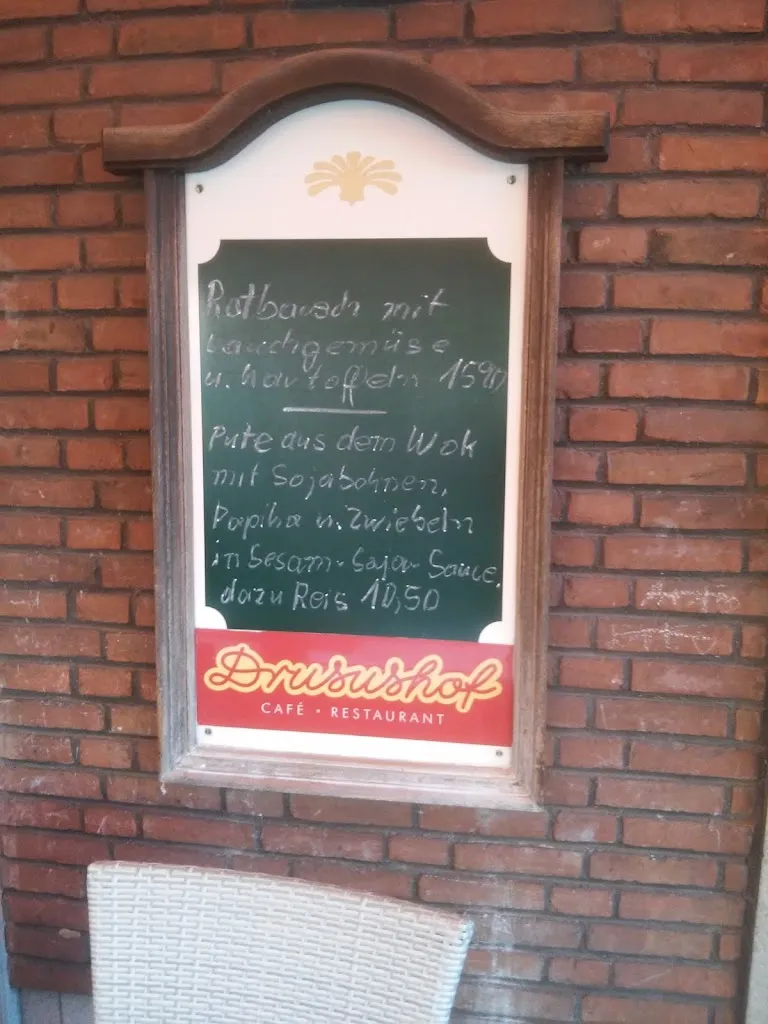 Rotbarsch mit
Lauchgemüse
u. Kartoffeln 15,90
Pute aus dem Wok
mit Sojabohnen,
Paprika u. Zwiebeln
in Sesam-Soja-Sauce,
dazu Reis 10,50
Drusushof
CAFÉ · RESTAURANT